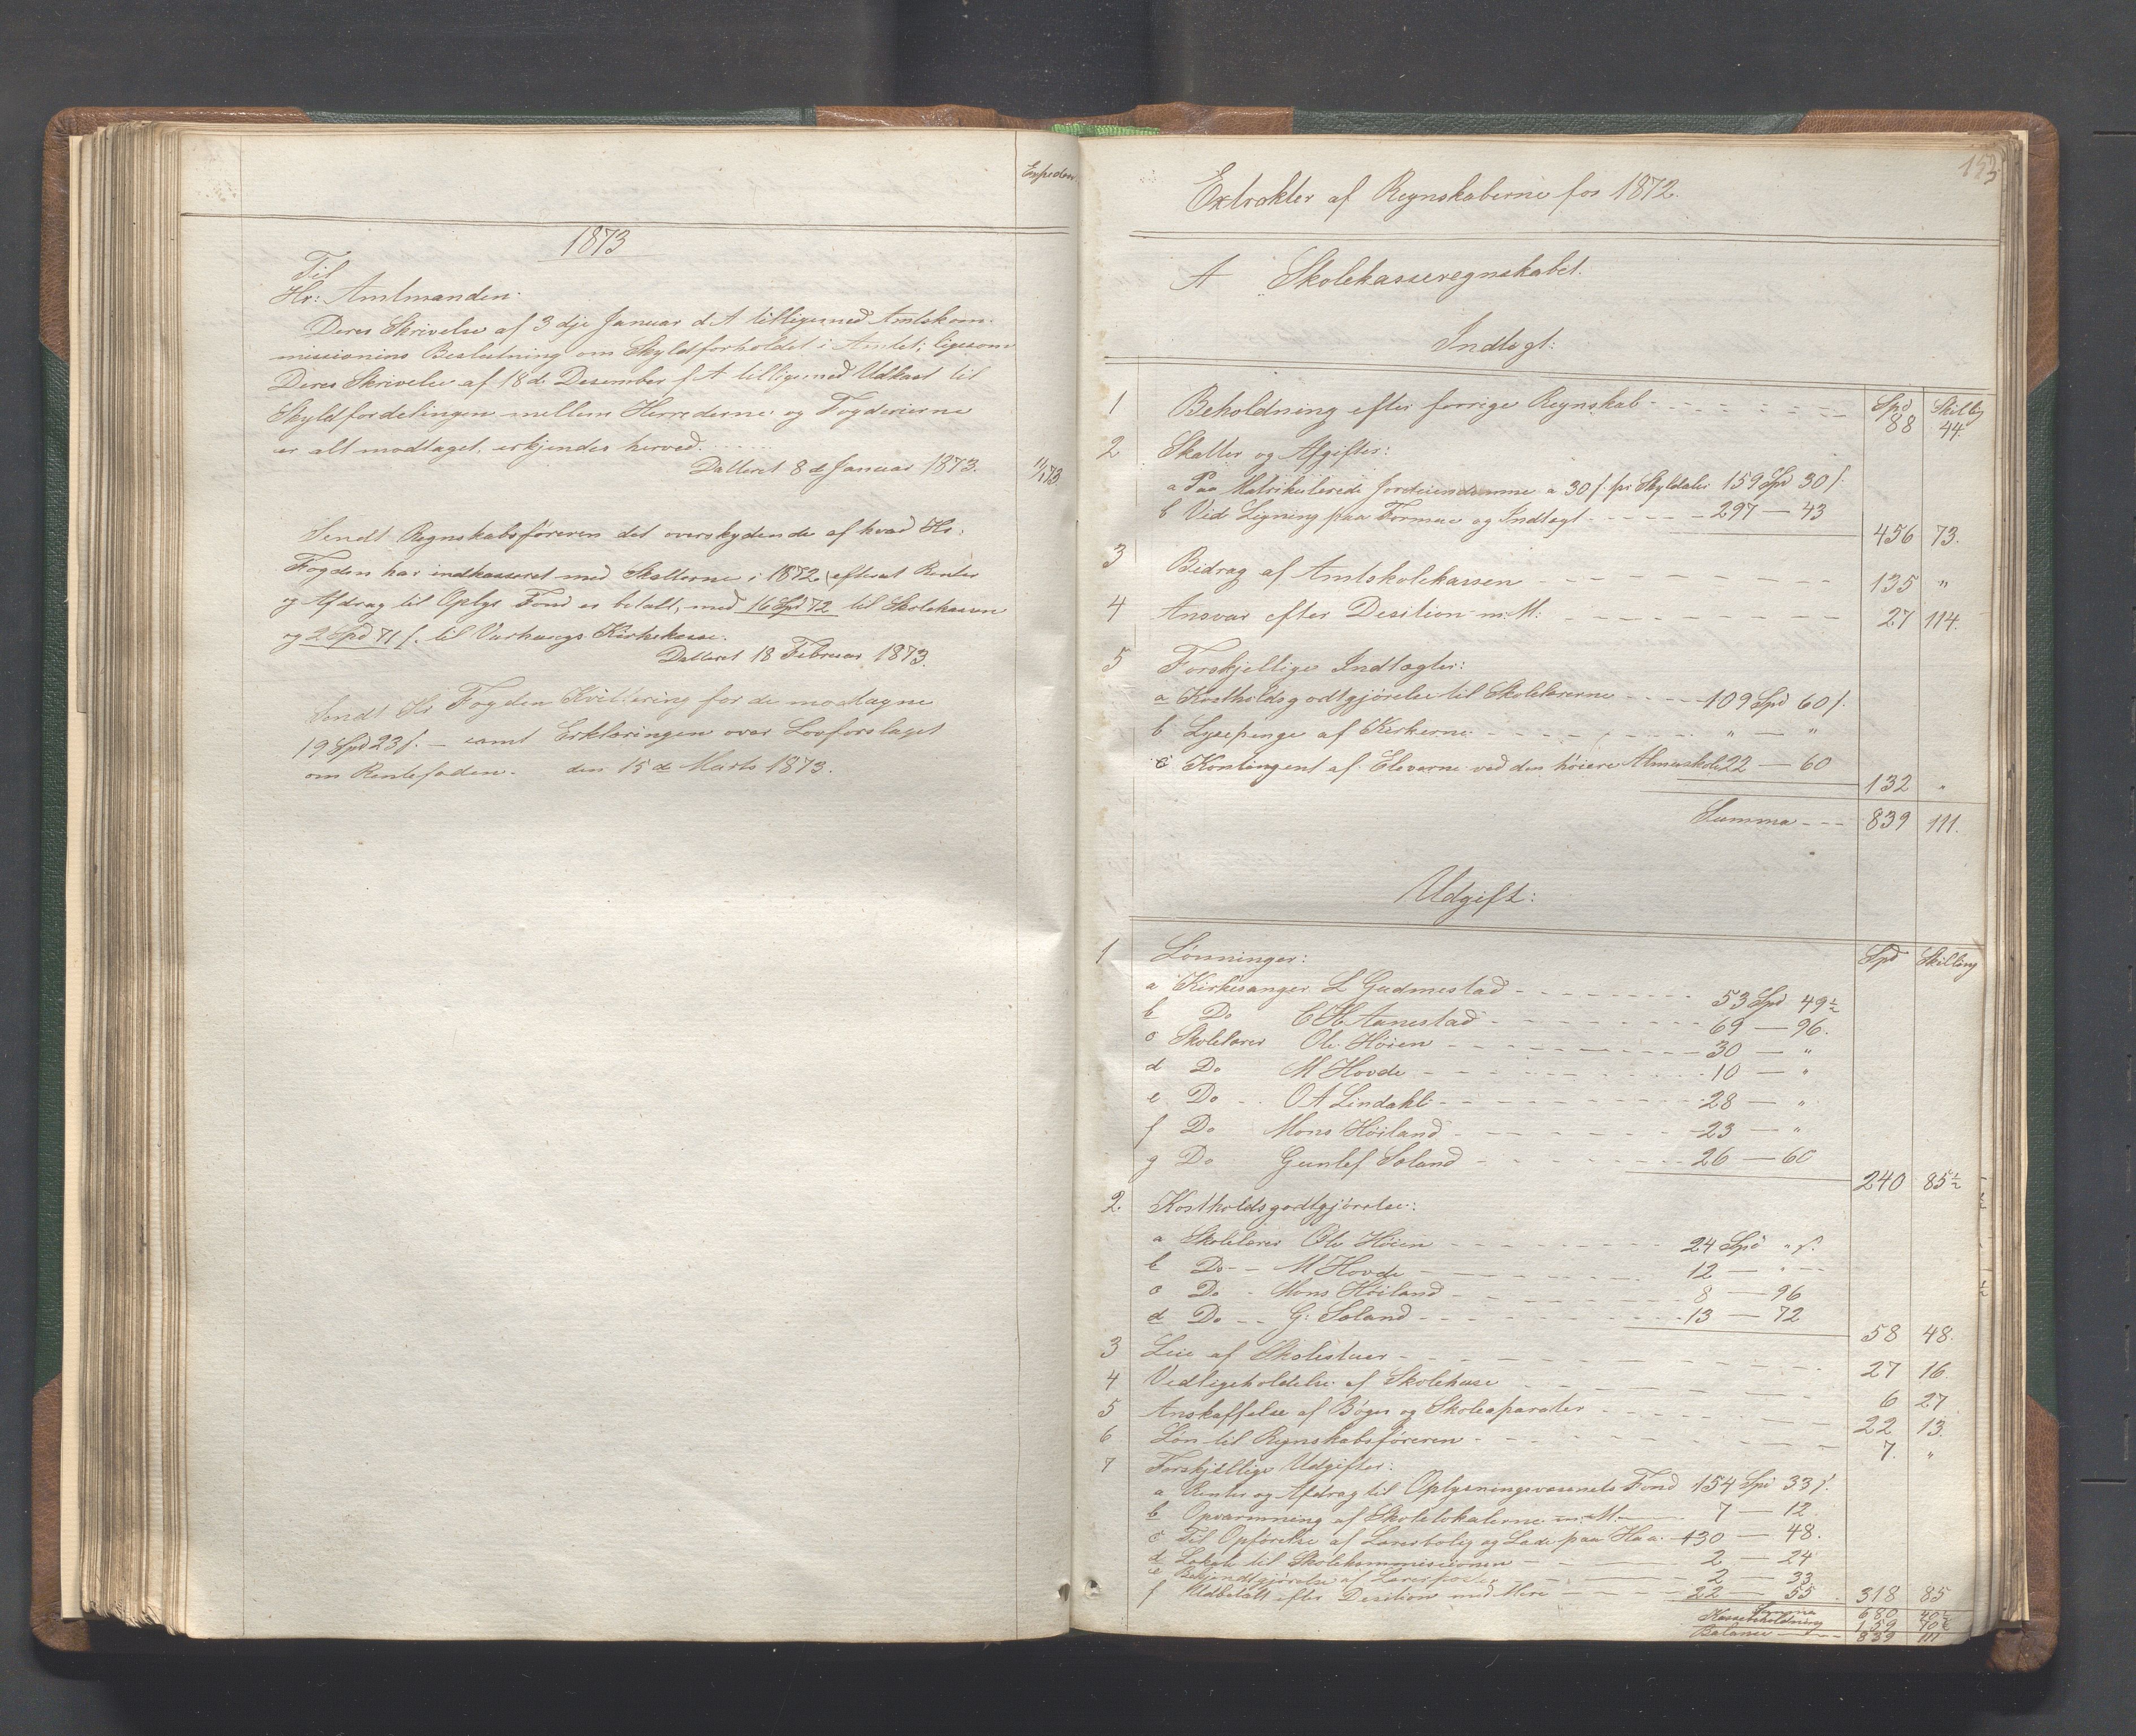 Expeden.
1873
Til
Hr: Amtmanden.
Deres Skrivelse af 3dje Januar d A tilligemed Amtskom-
missionins Beslutning om Skyldforholdet i Amtet; ligesom
Deres Skrivelse af 18 de Desember f A tilligemed Udkast til
Skyldfordelingen mellem Herrederne og Fogderierne
er alt modtaget, erkjendes herved.
Datteret 8 de Januar 1873.
11/1 73
Sendt Regnskabsføreren det overskydende af hvad Hr.
Fogden har indkasseret med Skatterne i 1872 efterat Renter
og Afdrag til Oplys Fond er betalt, med 16 Spd 72 til Skolekassen
og 2 Spd 71 s. til Varhaugs Kirkekasse.
Datteret 18 Februar 1873.
Sendt Hr Fogden Kvittering for de modtagne
19 Spd 23 s. – samt Erklæringen over Lovforslaget
om Rentefoden. den 15 de Marts 1873.
153
Extrakter af Regnskaberne for 1872.
A Skolekasseregnskabet.
Indtægt:
Spd Skilling
1 Beholdning efter forrige Regnskab 88 44.
2 Skatter og Afgifter:
a Paa Matrikulerede Jordeiendomme a 30 s. pr Skylddaler 159 Spd 30 s.
b Vid Ligning paa Formue og Indtægt 297 — 43
456 73.
3 Bidrag af Amtskolekassen 135 "
4 Ansvar efter Desition m: M: 27 114.
5 Forskjellige Indtægter:
a Kostholdsgodtgjörelse til Skolelærerne 109 Spd 60 s.
b Lysepenge af Kirkerne " — "
c Kontingent af Eleverne ved den høiere Almueskole 22 — 60
132 "
Summa 839 111.
Udgift:
Spd Skilling
1 Lönninger:
a Kirkesanger L Gudmestad 53 Spd 49½
b Do C H Aanestad 69 — 96.
c Skolelærer Ole Höien 30 — "
d Do M Hovde 10 — "
e Do O A Lindahl 28 — "
f Do Mons Höiland 23 — "
g Do Gunlef Soland 26 — 60
240 85½
2. Kostholdsgodtgjörelse:
a Skolelærer Ole Höien 24 Spd " s.
b Do M Hovde 12 — "
c Do Mons Höiland 8 — 96
d Do G: Soland 13 — 72
58 48.
3 Leie af Skolestuer 27 16.
4 Vedligeholdelse af Skolehuse 6 27
5 Anskaffelse af Böger og Skoleaparater 22 13.
6 Lön til Regnskabsföreren 7. "
7 Forskjellige Udgifter:
a Renter og Afdrag til Oplysningsvæsenets Fond 154 Spd 33 s.
b Opvarmning af Skolelokalerne m: M. 7 — 12
c Til Opförelse af Lærerbolig og Lade paa Haa 130 — 48.
d Lokale til Skolekommissionen 2 — 24
e Bekjendtgjörelse af Lærerposter 2 — 33
f Udbetalt efter Desition med Mere 22 — 55. 318 85
Summa 680 40½
Kassebeholdning 159 70½
Balance 839 111